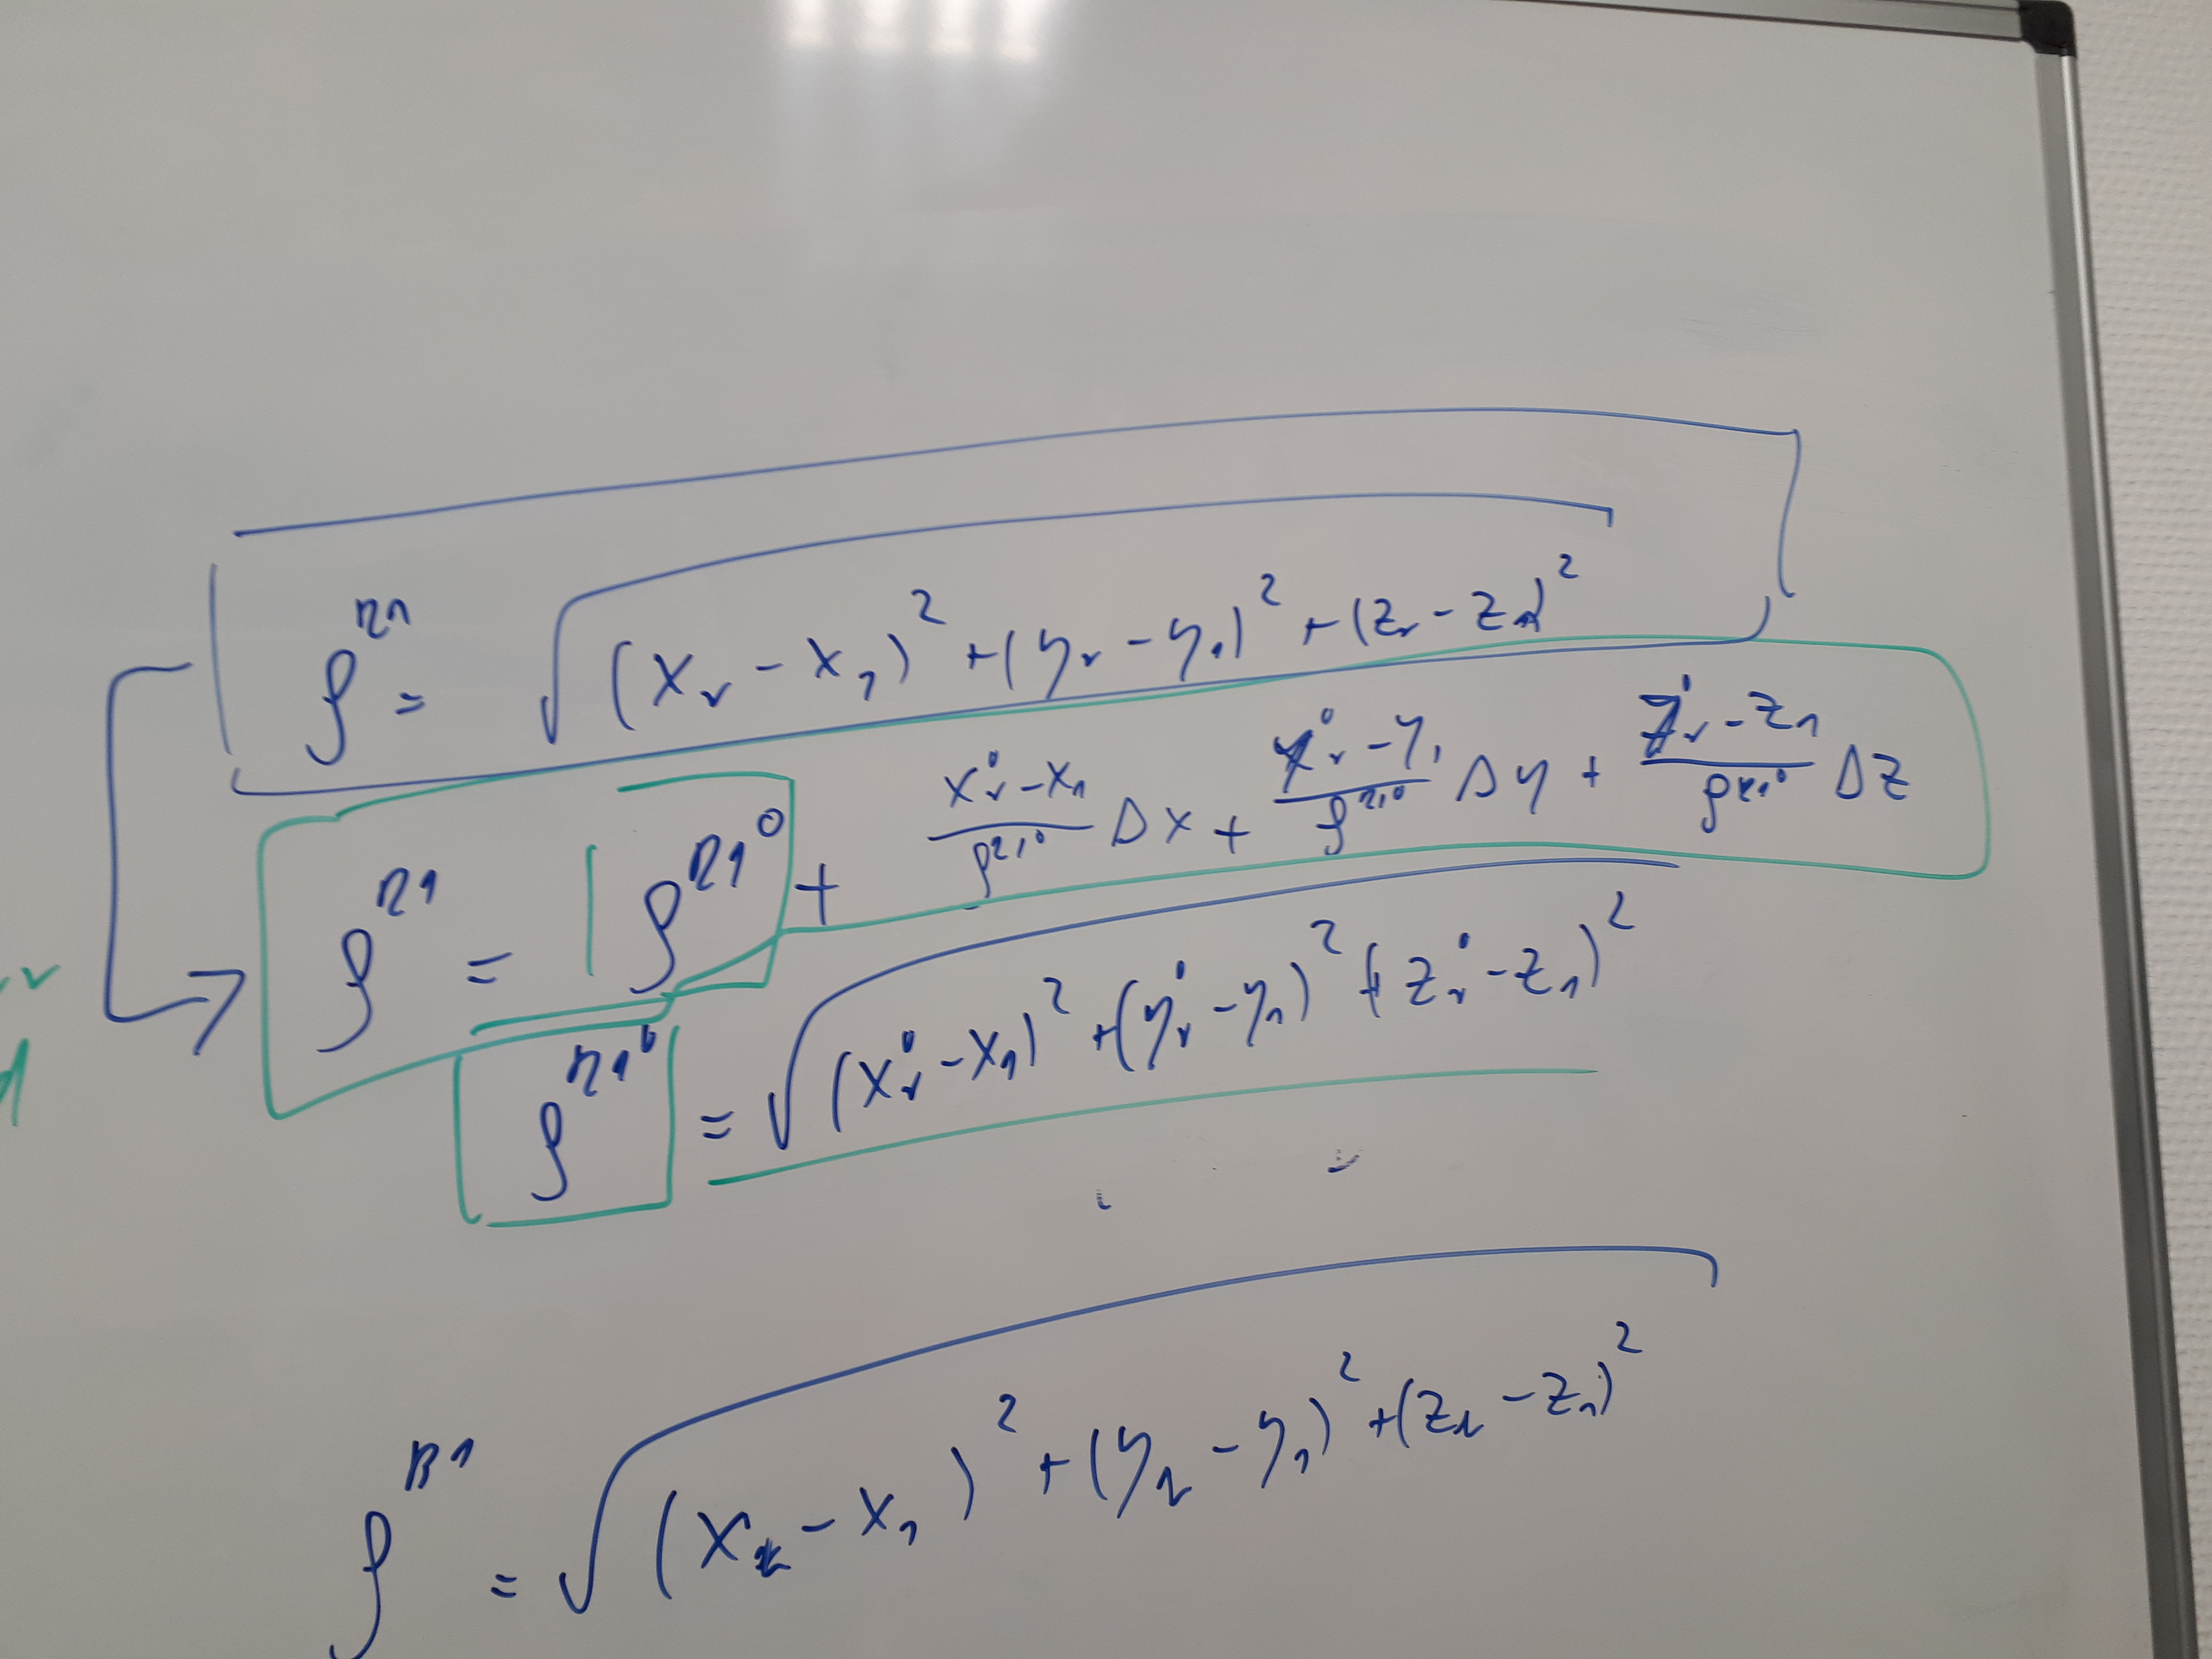 ρ^{r1} = √((x_r - x_1)^2 + (y_r - y_1)^2 + (z_r - z_1)^2)
ρ^{r1} = ρ^{r1^0} + \frac{x_r^0 - x_1}{ρ^{r1^0}} Δx + \frac{y_r^0 - y_1}{ρ^{r1^0}} Δy + \frac{z_r^0 - z_1}{ρ^{r1^0}} Δz
ρ^{r1^0} = √((x_r^0 - x_1)^2 + (y_r^0 - y_1)^2 + (z_r^0 - z_1)^2)
ρ^{R1} = √((x_r - x_1)^2 + (y_r - y_1)^2 + (z_r - z_1)^2)